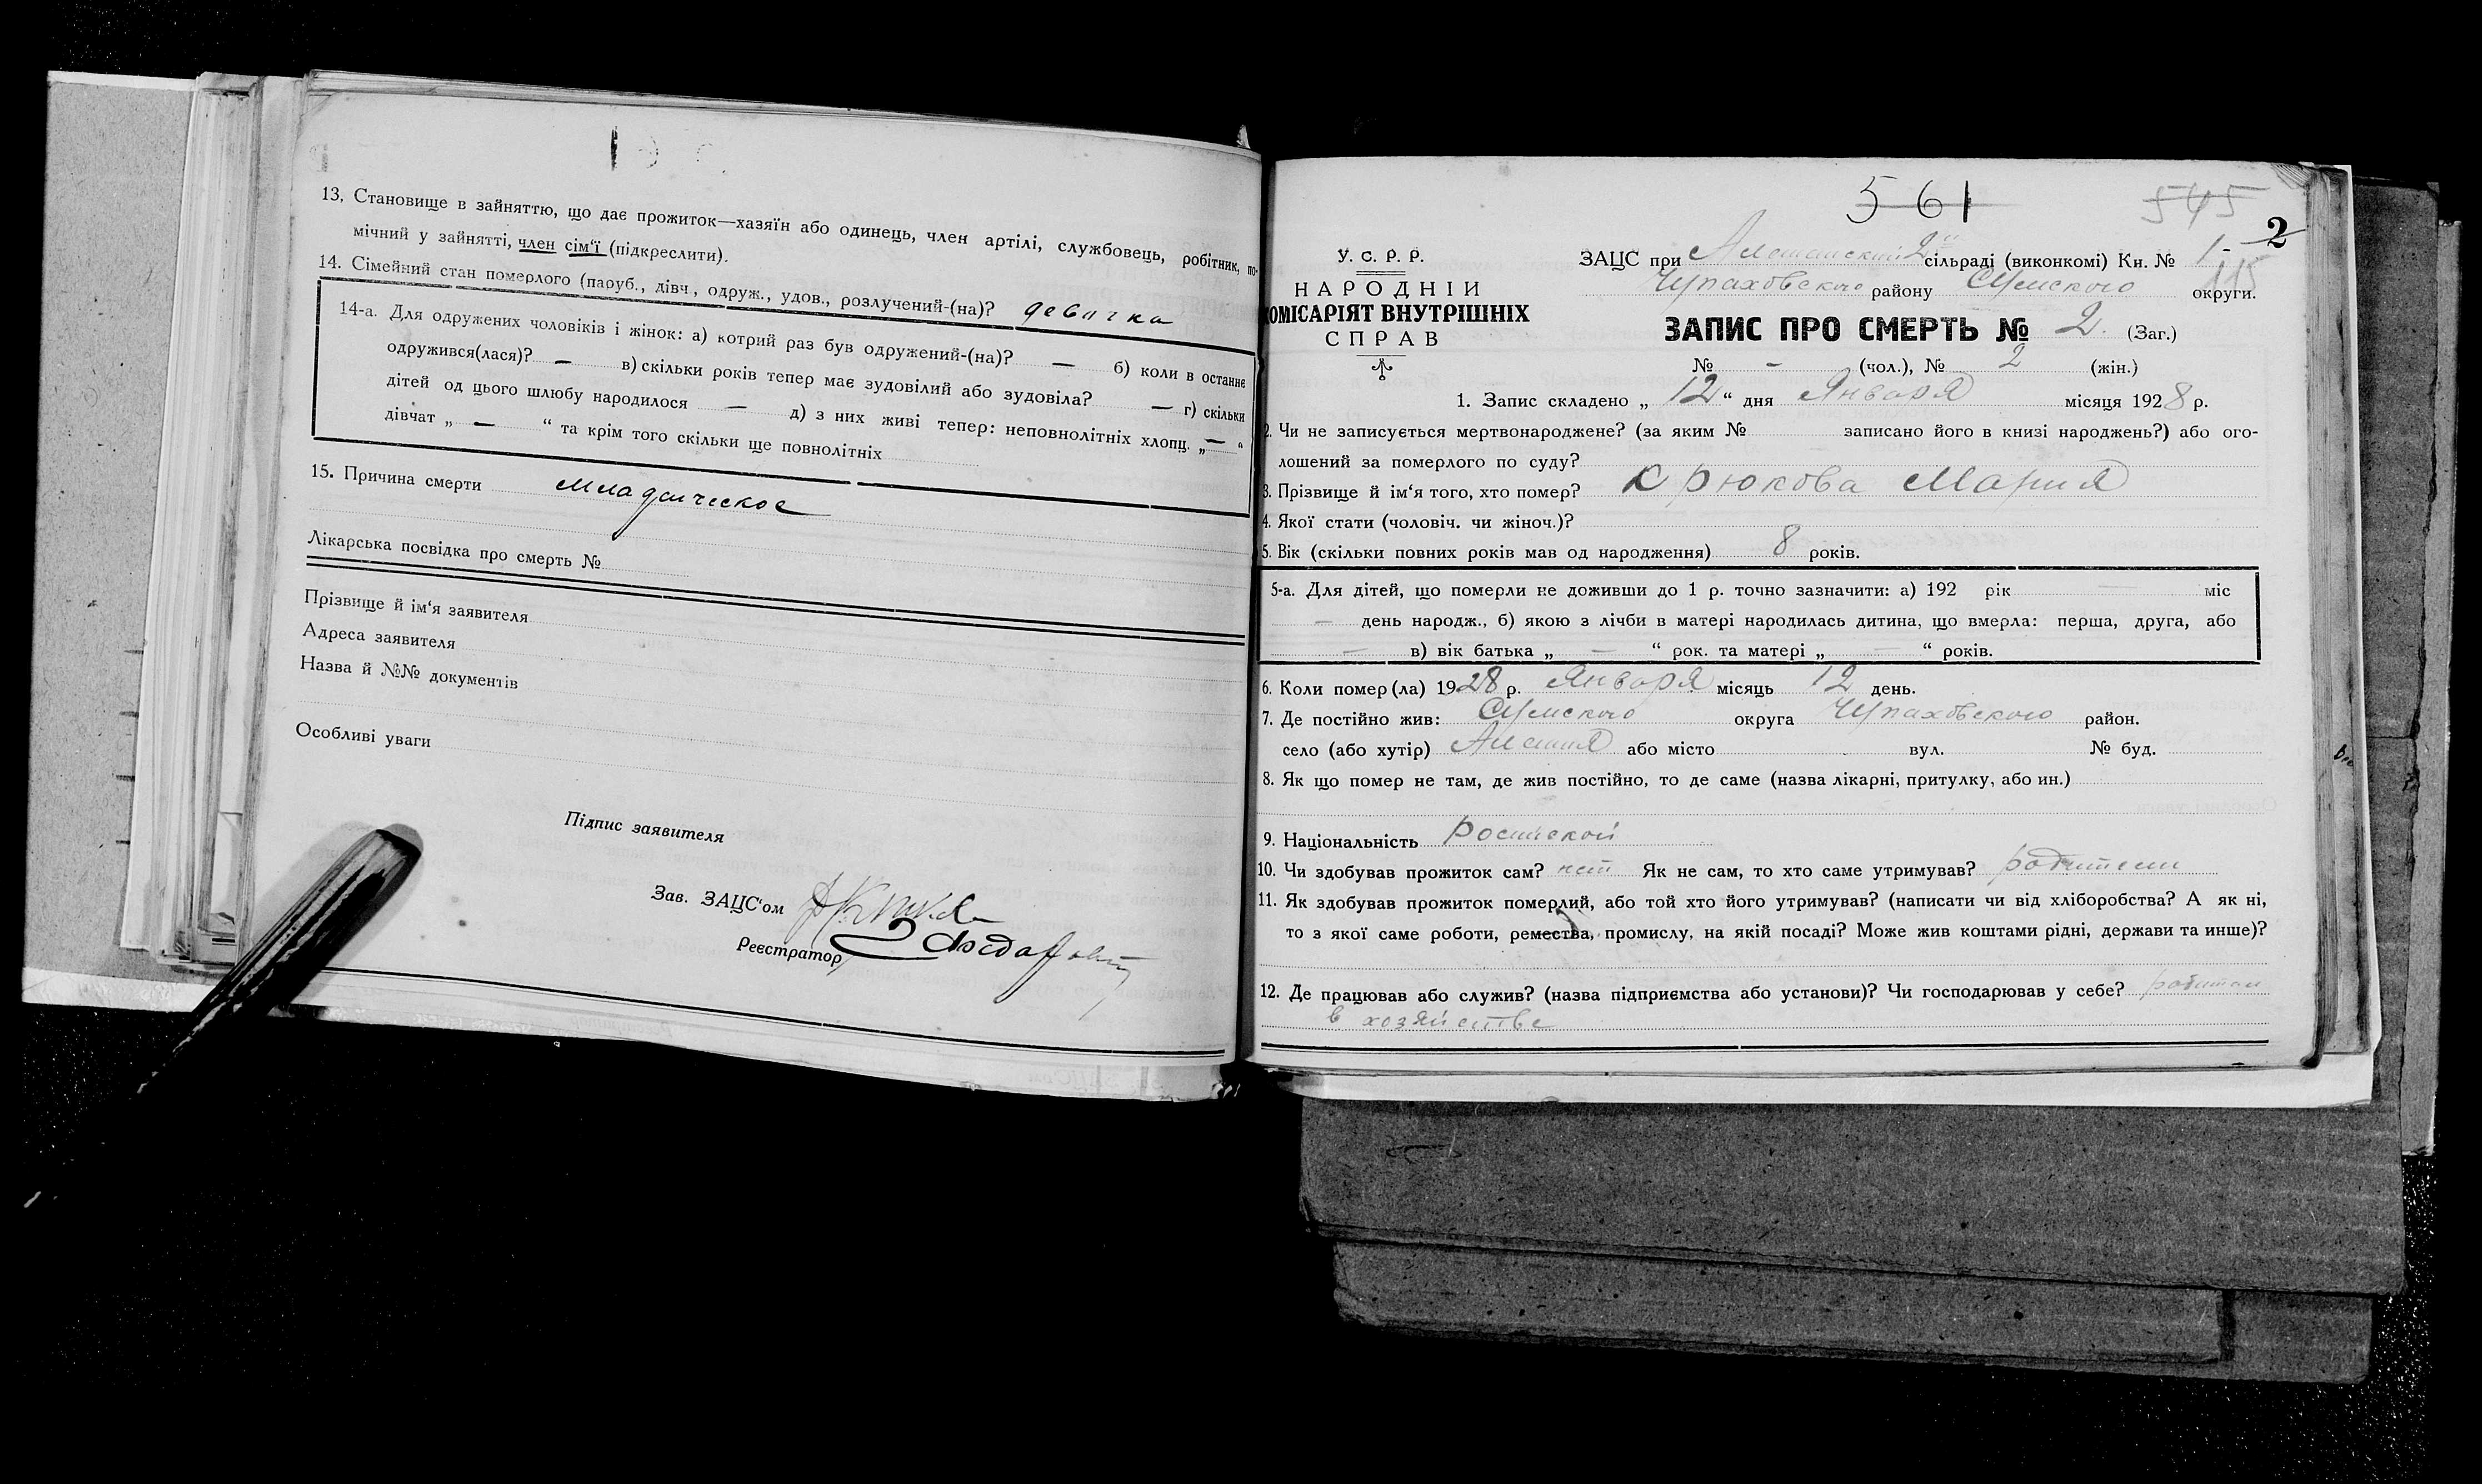 13. Становище в зайняттю, що дає прожиток—хазяїн або одинець, член артілі, службовець, робітник, по-
мічний у зайнятті, член сім'ї (підкреслити).
14. Сімейний стан померлого (паруб., дівч., одруж., удов., розлучений-(на)? девичка
14-а. Для одружених чоловіків і жінок: а) котрий раз був одружений-(на)? — б) коли в останнє
одружився(лася)? — в) скільки років тепер має зудовілий або зудовіла? — г) скільки
дітей од цього шлюбу народилося — д) з них живі тепер: неповнолітніх хлопц. „ — “
дівчат „ — “ та крім того скільки ще повнолітніх
15. Причина смерти младенческое
Лікарська посвідка про смерть №
Прізвище й ім'я заявителя
Адреса заявителя
Назва й №№ документів
Особливі уваги
Підпис заявителя
Зав. ЗАЦС'ом
Реєстратор
561 545
2
У. С. Р. Р.
НАРОДНІЙ
КОМІСАРІЯТ ВНУТРІШНІХ
СПРАВ
ЗАЦС при сільраді (виконкомі) Кн. № 1-
115
Чупаховского району Сумского округи.
ЗАПИС ПРО СМЕРТЬ № 2. (Заг.)
№ - (чол.), № 2 (жін.)
1. Запис складено „ 12 “ дня Января місяця 1928 р.
2. Чи не записується мертвонароджене? (за яким № записано його в книзі народжень?) або ого-
лошений за померлого по суду?
3. Прізвище й ім'я того, хто помер? Крюкова Мария
4. Якої стати (чоловіч. чи жіноч.)?
5. Вік (скільки повних років мав од народження) 8 років.
5-а. Для дітей, що померли не доживши до 1 р. точно зазначити: а) 192 рік — міс
— день народж., б) якою з лічби в матері народилась дитина, що вмерла: перша, друга, або
— в) вік батька „ — “ рок. та матері „ — “ років.
6. Коли помер(ла) 1928 р. Января місяць 12 день.
7. Де постійно жив: Сумского округа Чупаховского район.
село (або хутір) або місто вул. № буд.
8. Як що помер не там, де жив постійно, то де саме (назва лікарні, притулку, або ин.)
9. Національність росийской
10. Чи здобував прожиток сам? нет Як не сам, то хто саме утримував? родители
11. Як здобував прожиток померлий, або той хто його утримував? (написати чи від хліборобства? А як ні,
то з якої саме роботи, ремества, промислу, на якій посаді? Може жив коштами рідні, держави та инше)?
12. Де працював або служив? (назва підприємства або установи)? Чи господарював у себе?
в хозяйстве